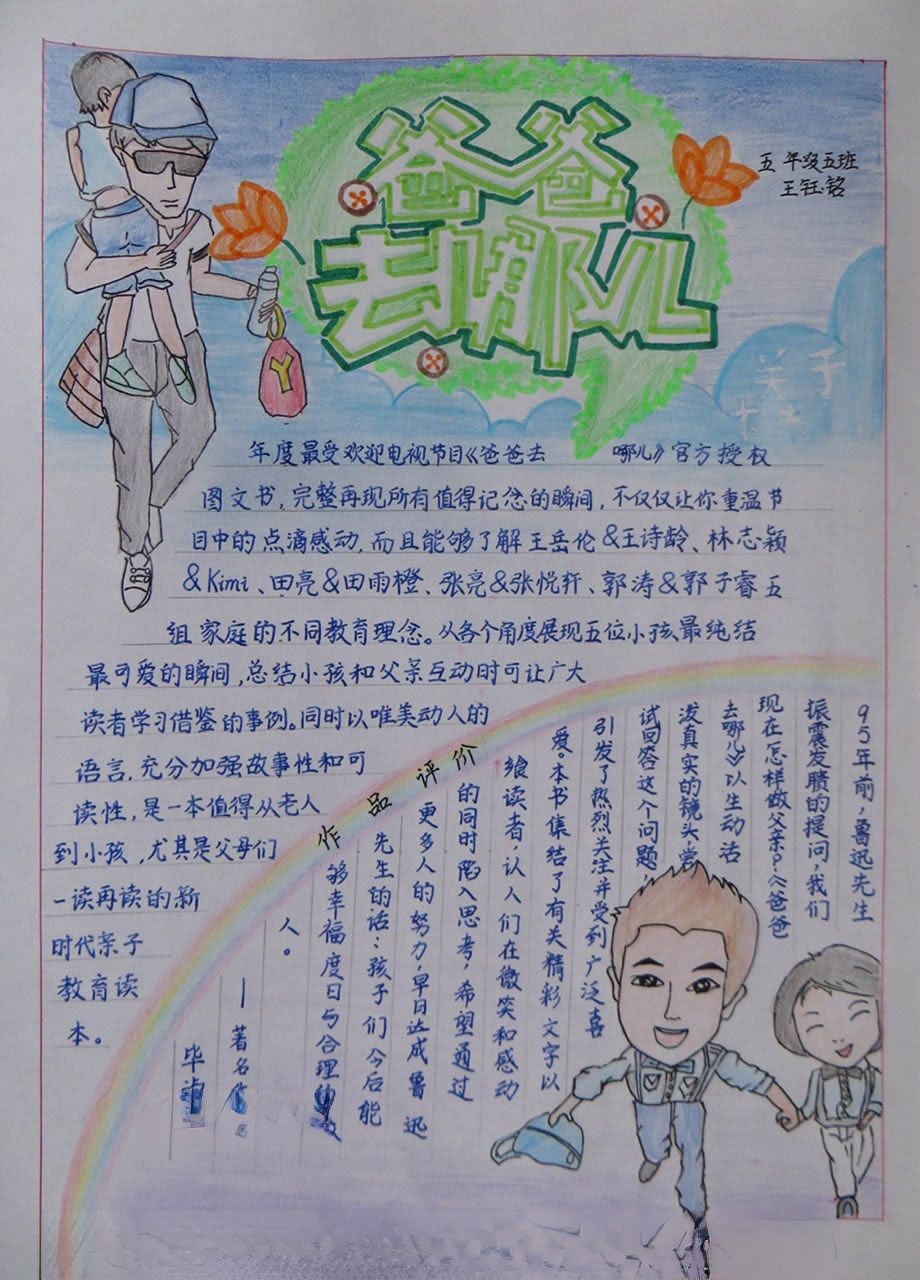 爸爸
去哪儿
五年级五班
王钰铭
关于
年度最受欢迎电视节目《爸爸去 哪儿》官方授权
图文书,完整再现所有值得记念的瞬间,不仅仅让你重温节
目中的点滴感动,而且能够了解王岳伦&王诗龄、林志颖
&Kimi、田亮&田雨橙、张亮&张悦轩、郭涛&郭子睿五
组家庭的不同教育理念。从各个角度展现五位小孩最纯结
最可爱的瞬间,总结小孩和父亲互动时可让广大
读者学习借鉴的事例。同时以唯美动人的
语言,充分加强故事性和可
读性,是一本值得从老人
到小孩,尤其是父母们
一读再读的新
时代亲子
教育读
本。
作品评价
95年前,鲁迅先生
振震发聩的提问,我们
现在怎样做父亲?《爸爸
去哪儿》以生动活
泼真实的镜头尝
试回答这个问题,
引发了热烈关注并受到广泛喜
爱。本书集结了有关精彩文字以
飨读者,认人们在微笑和感动
的同时陷入思考,希望通过
更多人的努力,早日达成鲁迅
先生的话:孩子们今后能
够幸福度日与合理
人。
—著名
毕